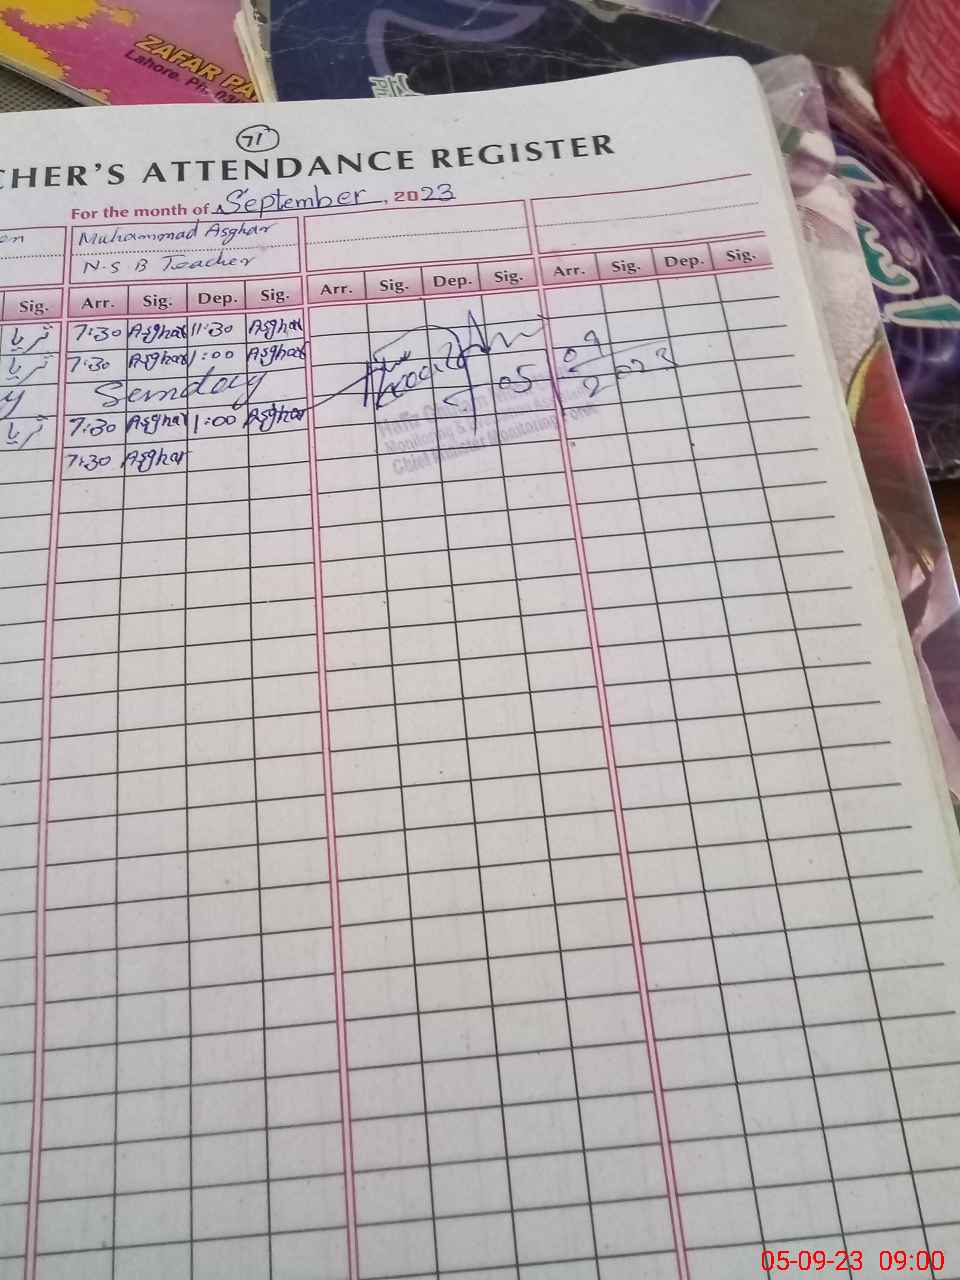 ZAFAR PA
Lahore. Ph. 03
71
CHER'S ATTENDANCE REGISTER
For the month of September, 2023
Muhammad Asghar
N.S B Teacher
Sig. Arr. Sig. Dep. Sig. Arr. Sig. Dep. Sig. Arr. Sig. Dep. Sig.
7:30 Asghar 11:30 Asghar
7:30 Asghar 1:00 Asghar
y Sunday
7:30 Asghar 1:00 Asghar
7:30 Asghar
05 09 2023
Monitoring & Evaluation
Chief Minister Monitoring Force
05-09-23 09:00